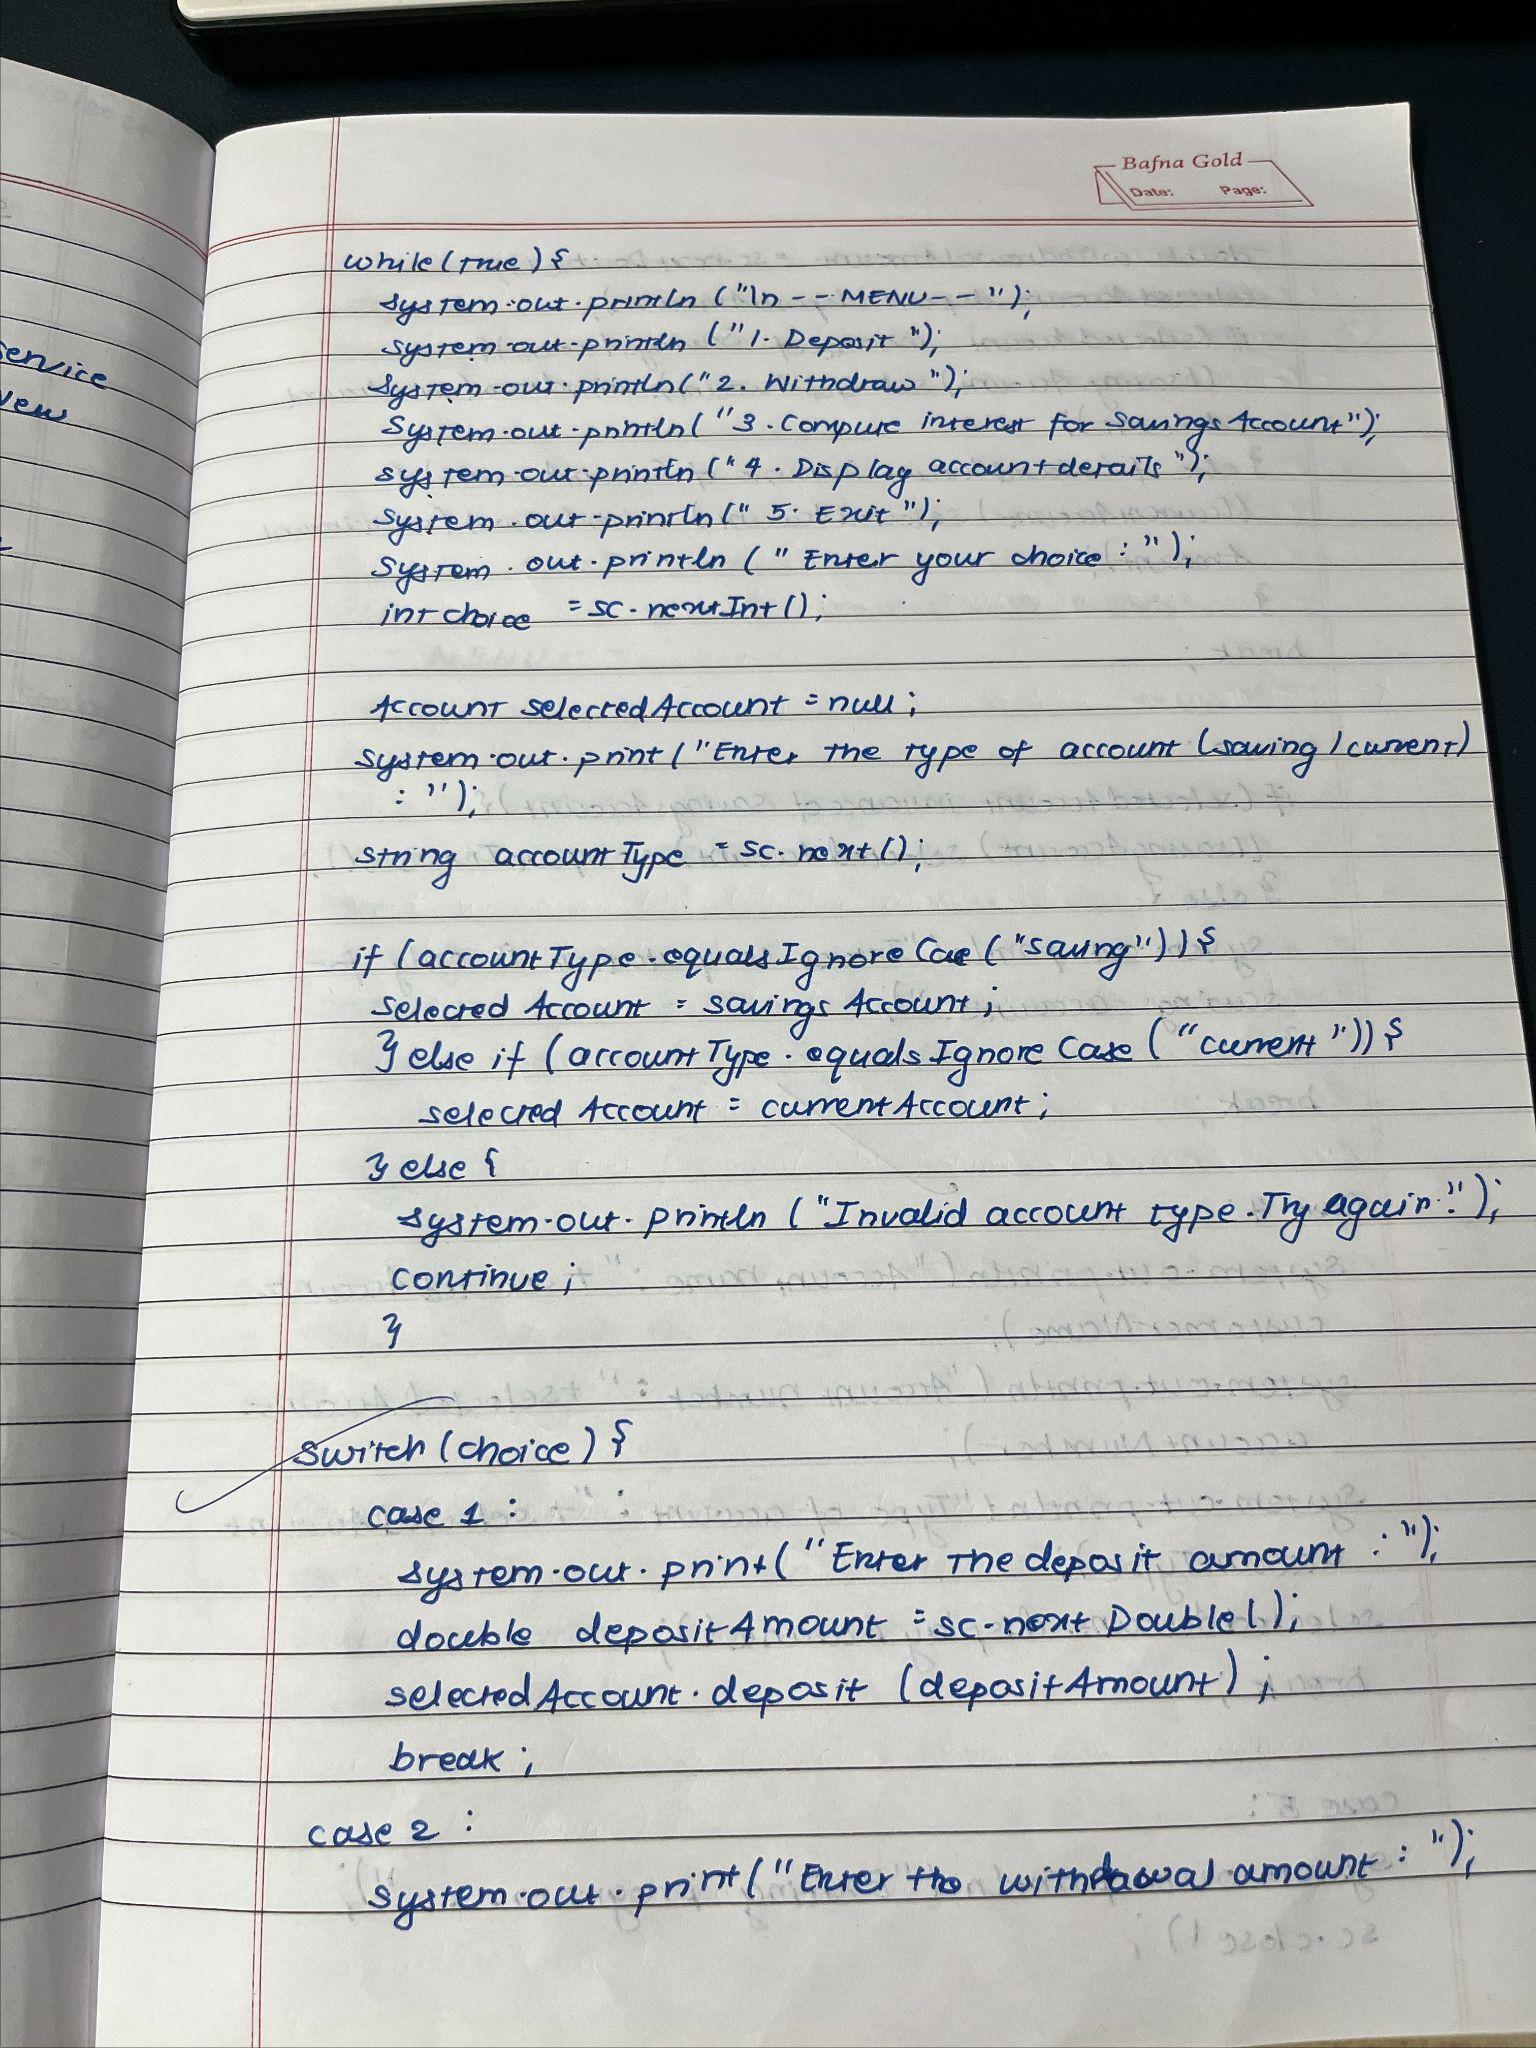 Bafna Gold
Date: Page:
service
while(true){
system.out.println ("\n--MENU--");
system.out.println ("1. Deposit");
System.out.println("2. Withdraw");
System.out.println("3. Compute interest for Savings Account");
system.out.println ("4. Display account details");
System.out.println(" 5. Exit");
System.out.println (" Enter your choice : ");
int choice = sc.nextInt();
Account selectedAccount = null;
system.out.print ("Enter the type of account (saving/current)
: ");
string accountType = sc.next();
if (accountType.equalsIgnoreCae ("saving")){
selectedAccount = savingsAccount;
} else if (accountType.equalsIgnoreCase ("current")){
selectedAccount = currentAccount;
} else {
system.out.println ("Invalid account type. Try again.");
continue;
}
switch(choice){
case 1 :
system.out.print("Enter the deposit amount : ");
double depositAmount = sc.nextDouble();
selectedAccount.deposit (depositAmount);
break;
case 2 :
system.out.print("Enter the withdrawal amount : ");